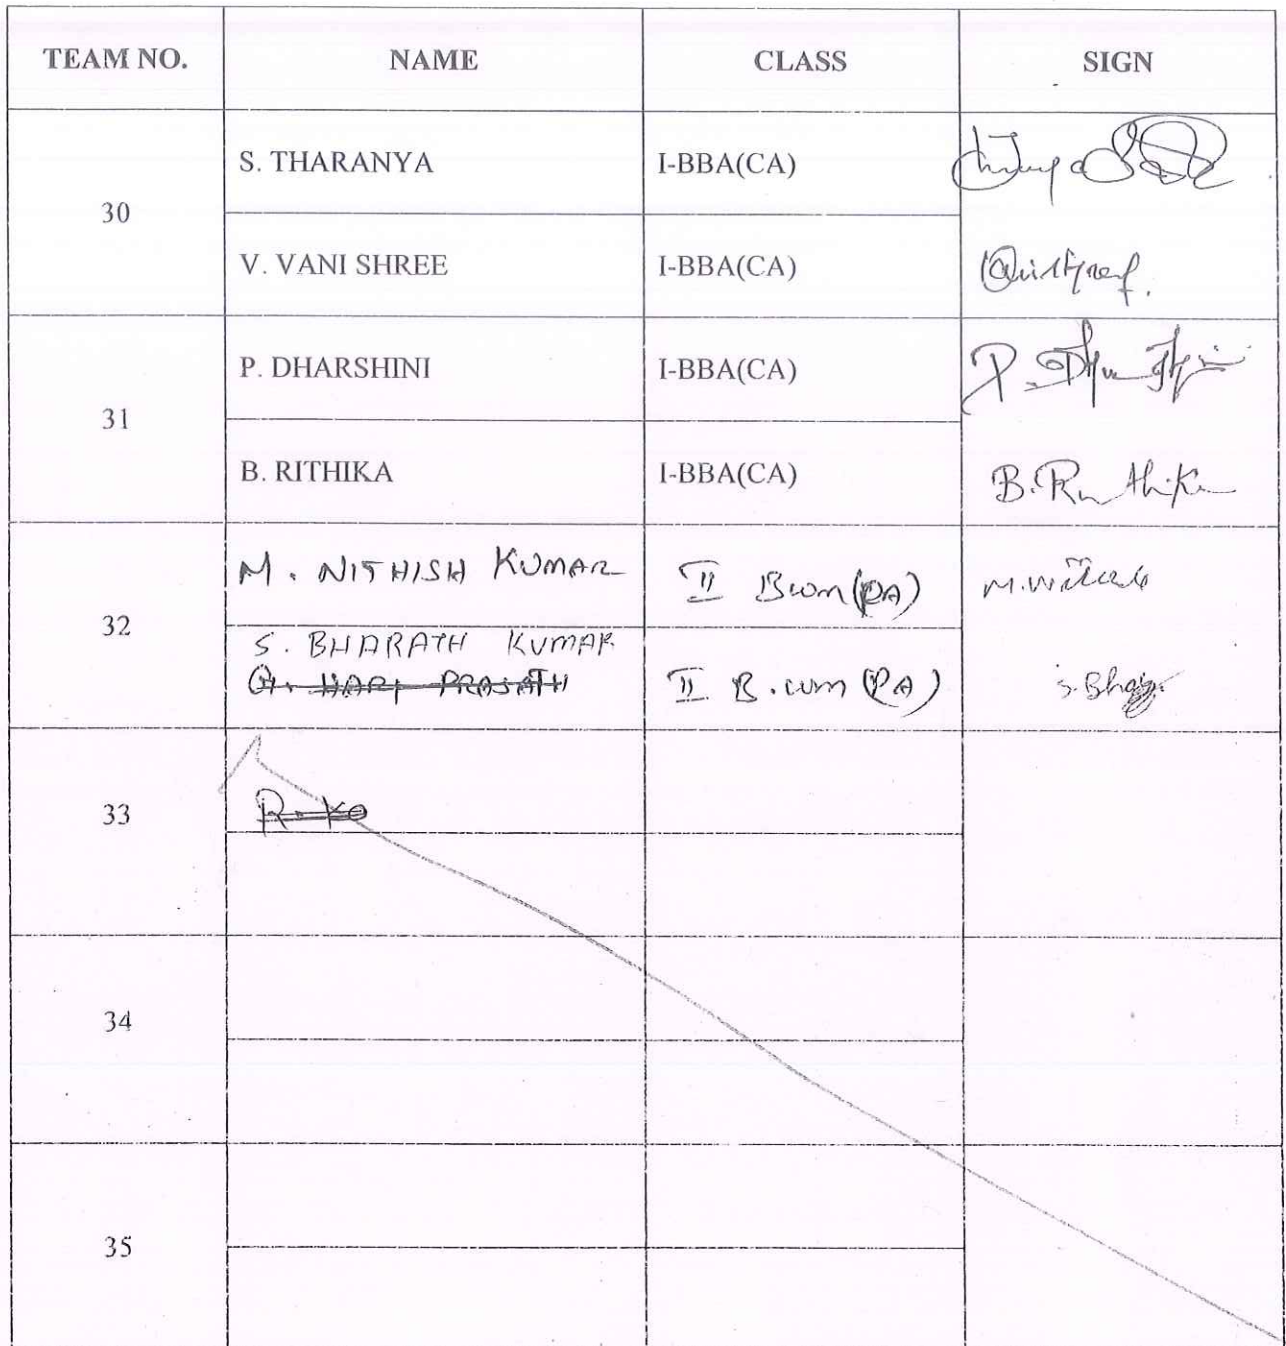 TEAM NO. NAME CLASS SIGN
30
S. THARANYA I-BBA(CA)
V. VANI SHREE I-BBA(CA)
31
P. DHARSHINI I-BBA(CA) P.
B. RITHIKA I-BBA(CA) B. Rithika
32
M. NITHISH KUMAR II B.com (PA)
S. BHARATH KUMAR
G. HARI PRASATH II B.com (PA)
33
R. Ko
34
35